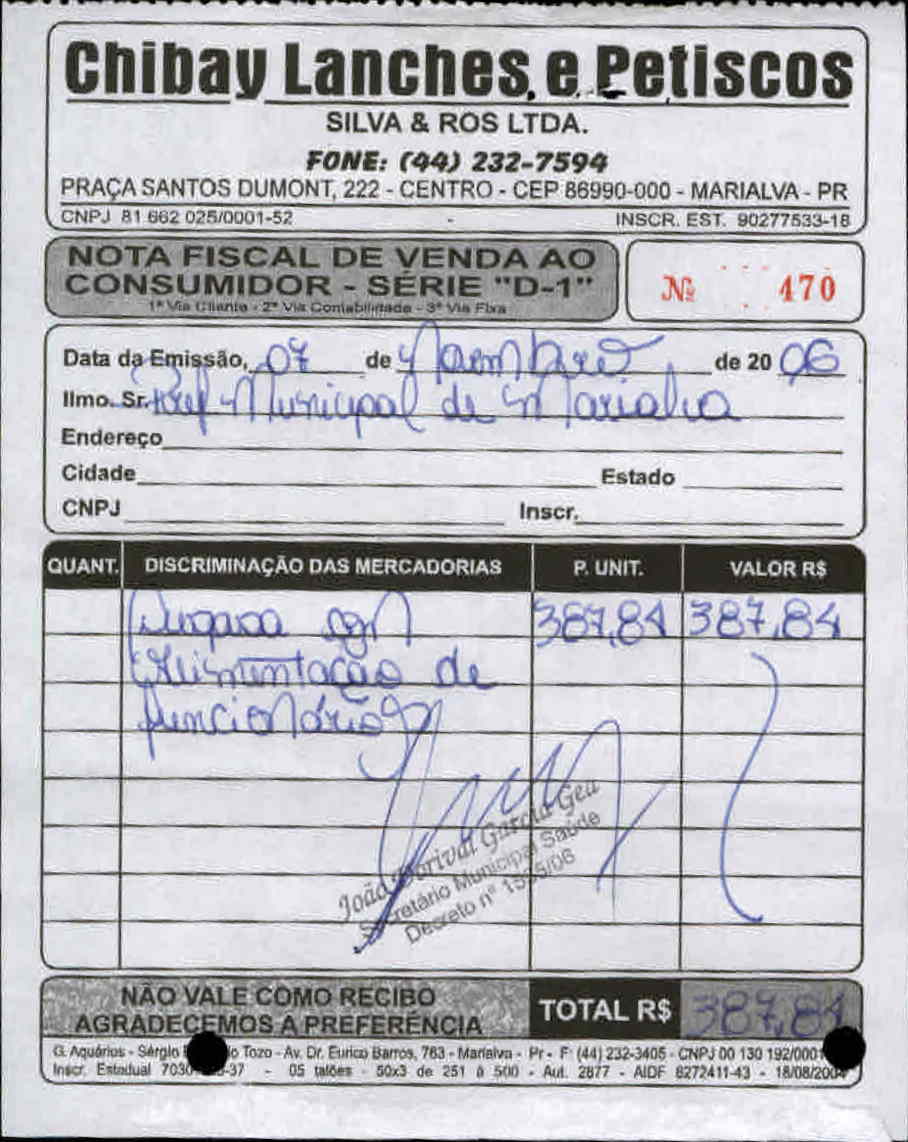 Chibay Lanches e Petiscos
SILVA & ROS LTDA.
FONE: (44) 232-7594
PRAÇA SANTOS DUMONT, 222 - CENTRO - CEP 86990-000 - MARIALVA - PR
CNPJ 81 662 025/0001-52 - INSCR. EST. 90277533-18
NOTA FISCAL DE VENDA AO
CONSUMIDOR - SÉRIE "D-1"
1ª Via Cliente - 2ª Via Contabilidade - 3ª Via Fixa
Nº 470
Data da Emissão, 07 de Novembro de 20 06
Ilmo. Sr. Pref Municipal de Marialva
Endereço
Cidade Estado
CNPJ Inscr.
QUANT. DISCRIMINAÇÃO DAS MERCADORIAS P. UNIT. VALOR R$
387,84 387,84
Alimentação de
funcionários
João Dorival Garcia Gea
Secretário Municipal Saúde
Decreto nº
NÃO VALE COMO RECIBO
AGRADECEMOS A PREFERÊNCIA
TOTAL R$ 387,84
G. Aquários - Sérgio Tozo - Av. Dr. Eurico Barros, 763 - Marialva - Pr - F: (44) 232-3405 - CNPJ 00 130 192/0001
Inscr. Estadual 7030 -37 - 05 talões - 50x3 de 251 à 500 - Aut. 2877 - AIDF 6272411-43 - 18/08/2004